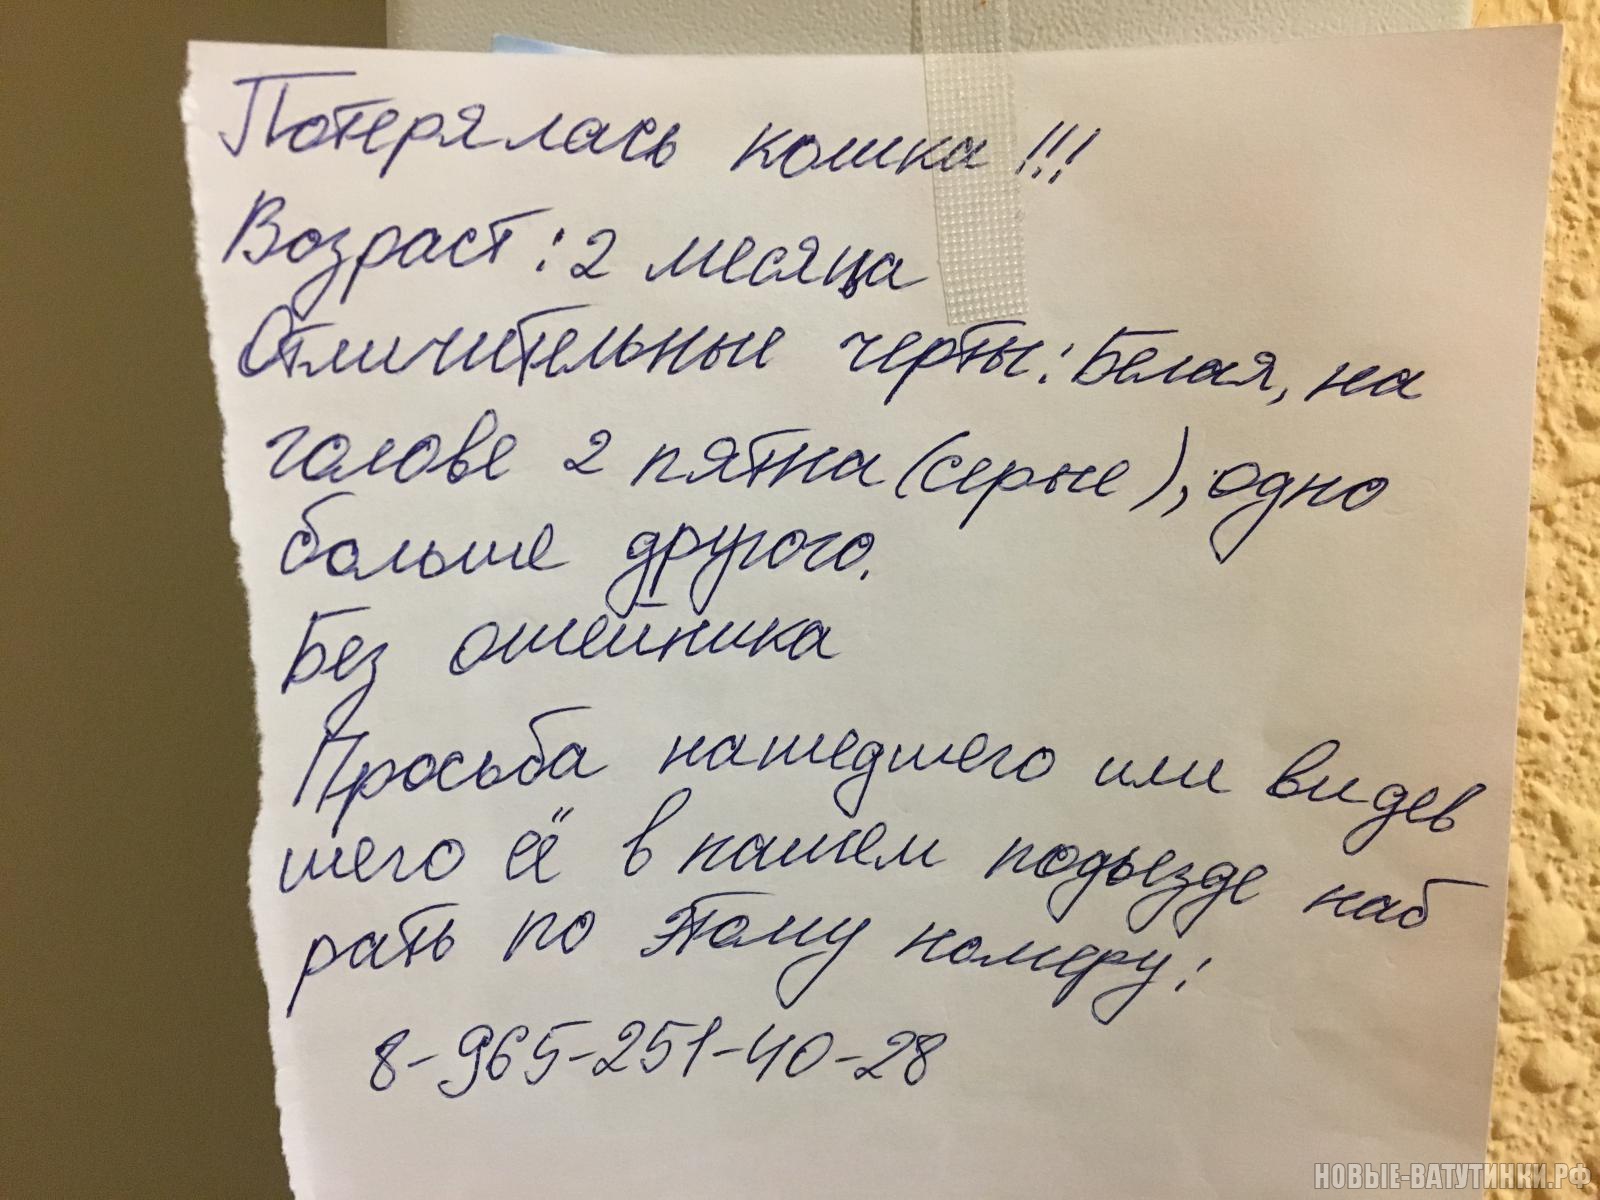 Потерялась кошка!!!
Возраст: 2 месяца
Отличительные черты: Белая, на
голове 2 пятна (серые), одно
больше другого.
Без ошейника
Просьба нашедшего или видев
шего её в нашем подьезде наб
рать по этому номеру:
8-965-251-40-28
НОВЫЕ-ВАТУТИНКИ.РФ